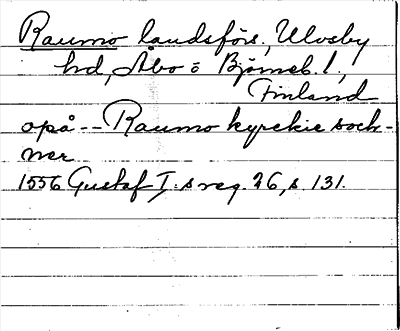 Raumo landsförs., Ulvsby
hd, Åbo o Björneb. l.,
Finland
opå -- Raumo kyrckie sock-
ner
1556 Gustaf I:s reg. 26, s 131.